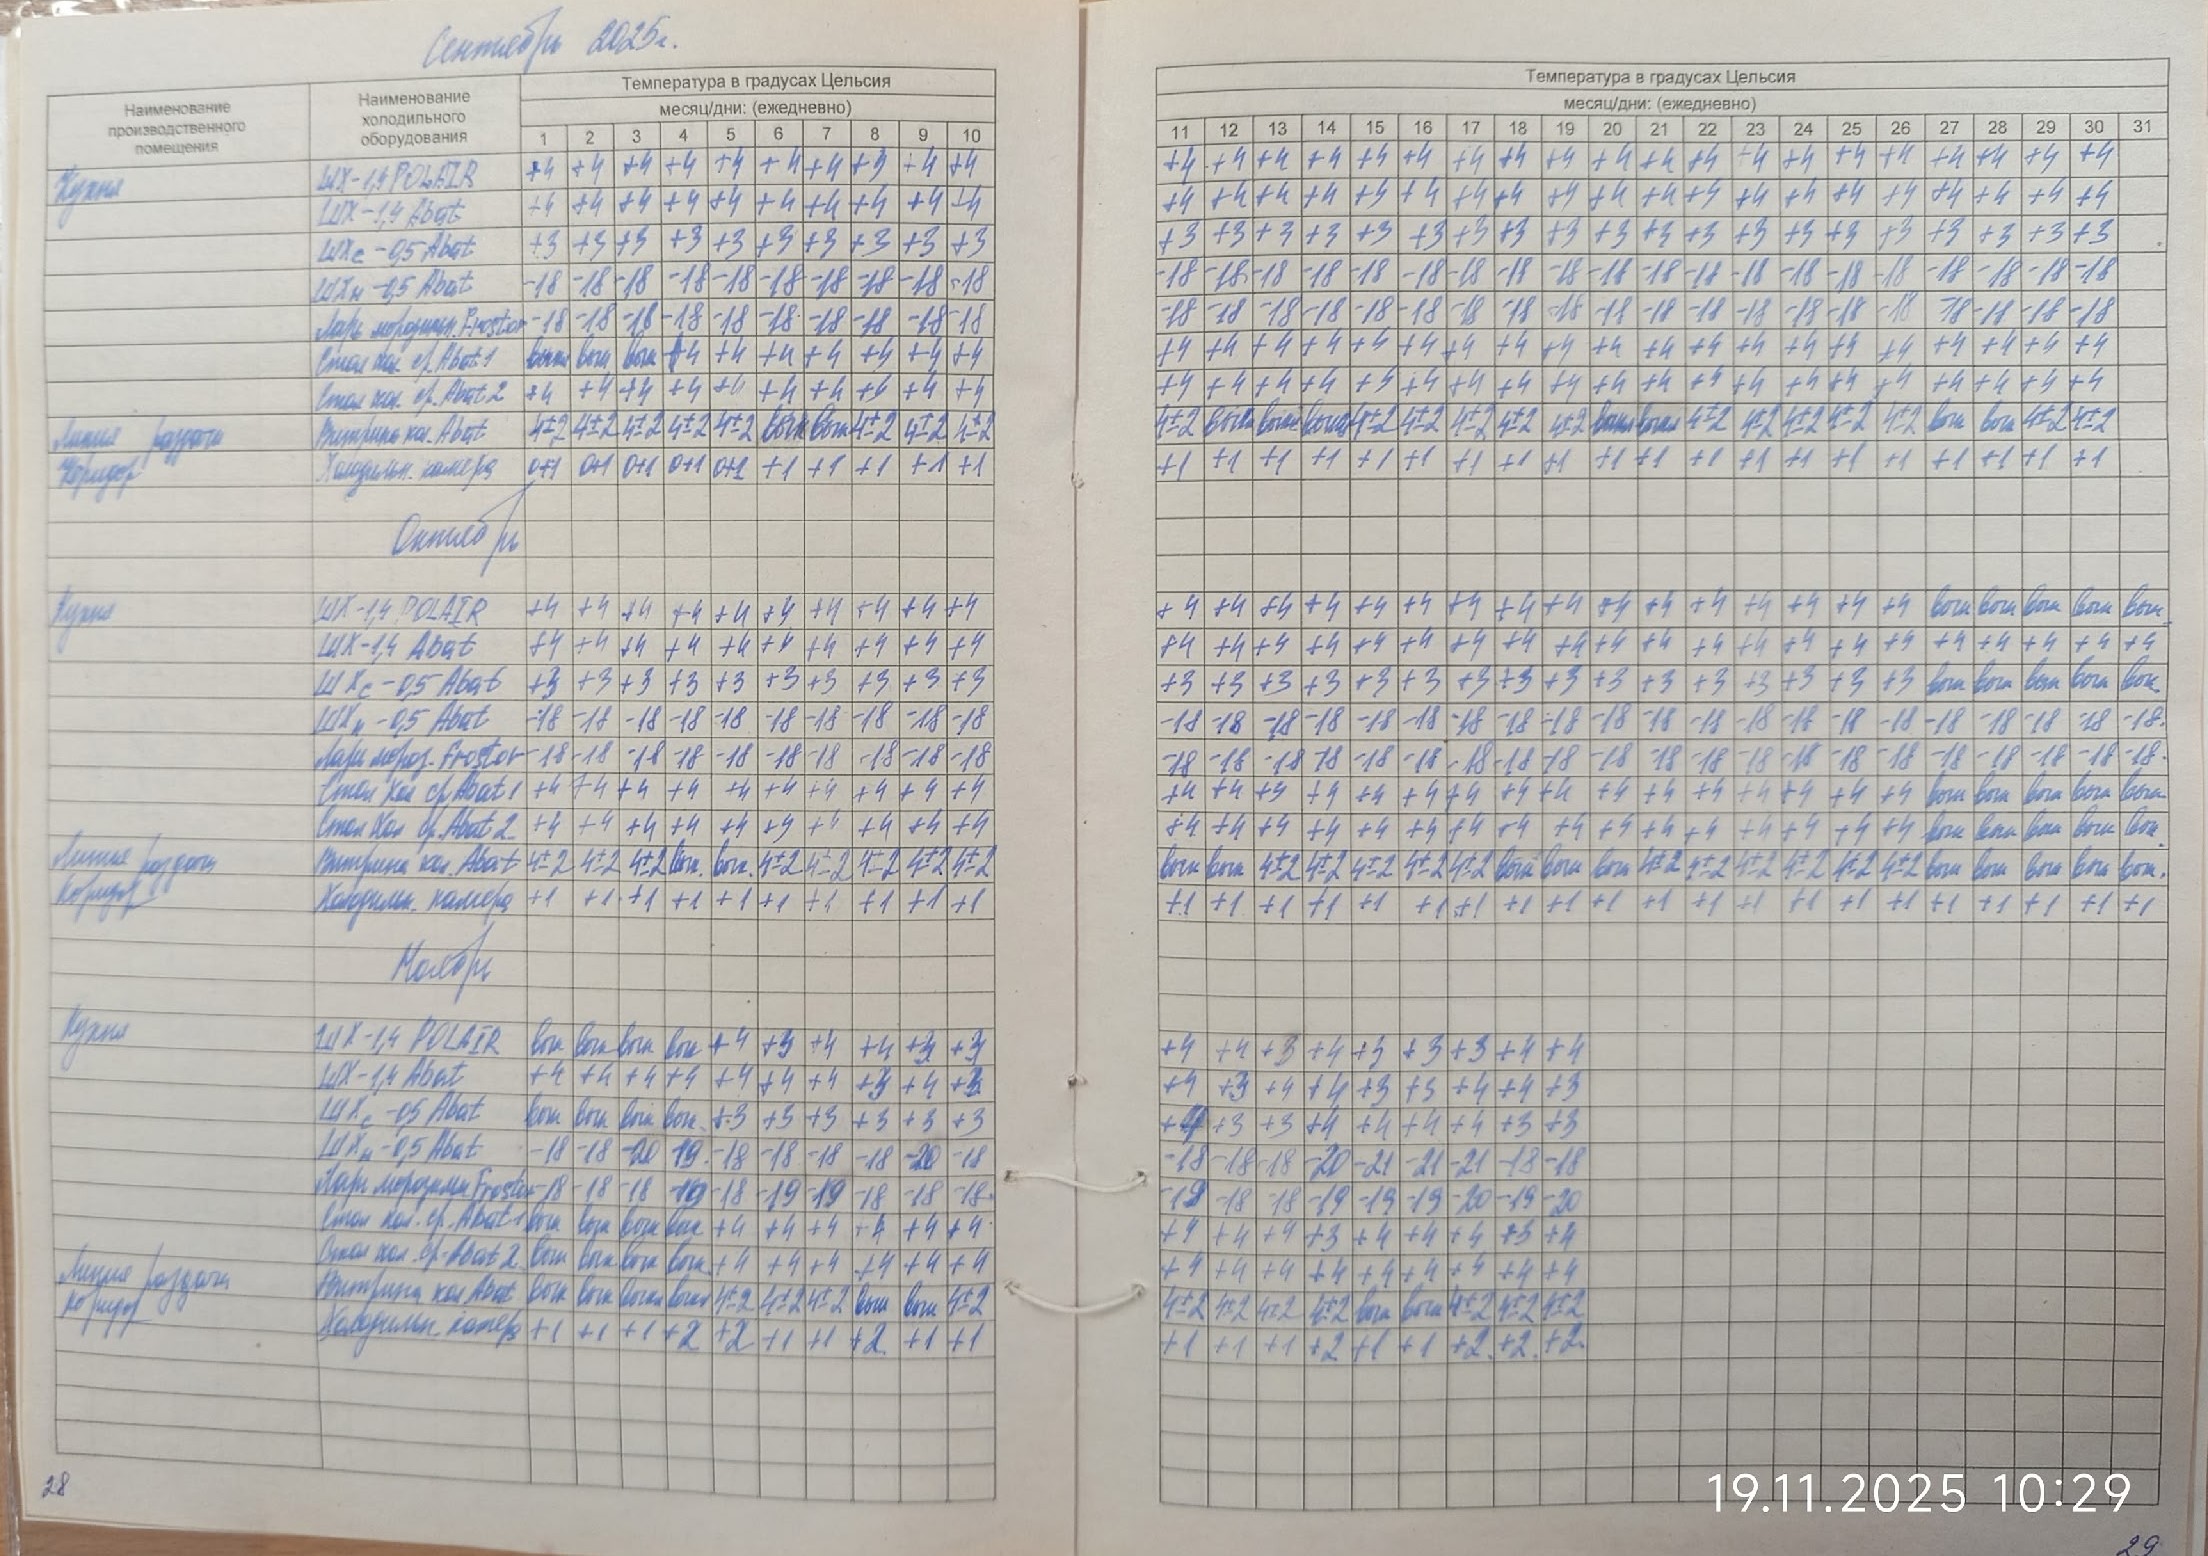 Сентябрь 2025г.
Наименование производственного помещения
Наименование холодильного оборудования
Температура в градусах Цельсия
месяц/дни: (ежедневно)
1 2 3 4 5 6 7 8 9 10
Температура в градусах Цельсия
месяц/дни: (ежедневно)
11 12 13 14 15 16 17 18 19 20 21 22 23 24 25 26 27 28 29 30 31
Кухня ШХ-1,4 POLAIR +4 +4 +4 +4 +4 +4 +4 +3 +4 +4 +4 +4 +4 +4 +4 +4 +4 +4 +4 +4 +4 +4 +4 +4 +4 +4 +4 +4 +4 +4
ШХ-1,4 Abat +4 +4 +4 +4 +4 +4 +4 +4 +4 +4 +4 +4 +4 +4 +4 +4 +4 +4 +4 +4 +4 +4 +4 +4 +4 +4 +4 +4 +4 +4
ШХс-0,5 Abat +3 +3 +3 +3 +3 +3 +3 +3 +3 +3 +3 +3 +3 +3 +3 +3 +3 +3 +3 +3 +3 +3 +3 +3 +3 +3 +3 +3 +3 +3
ШХн-0,5 Abat -18 -18 -18 -18 -18 -18 -18 -18 -18 -18 -18 -18 -18 -18 -18 -18 -18 -18 -18 -18 -18 -18 -18 -18 -18 -18 -18 -18 -18 -18
Ларь морозильн. Frostor -18 -18 -18 -18 -18 -18 -18 -18 -18 -18 -18 -18 -18 -18 -18 -18 -18 -18 -18 -18 -18 -18 -18 -18 -18 -18 -18 -18 -18 -18
Стол хол. ср. Abat 1 +4 +4 +4 +4 +4 +4 +4 +4 +4 +4 +4 +4 +4 +4 +4 +4 +4 +4 +4 +4 +4 +4 +4 +4 +4 +4 +4
Стол хол. ср. Abat 2 +4 +4 +4 +4 +4 +4 +4 +4 +4 +4 +4 +4 +4 +4 +4 +4 +4 +4 +4 +4 +4 +4 +4 +4 +4 +4 +4 +4 +4 +4
Линия раздачи Витрина хол. Abat 4±2 4±2 4±2 4±2 4±2 4±2 4±2 4±2 4±2 4±2 4±2 4±2 4±2 4±2 4±2 4±2 4±2 4±2 4±2 4±2 4±2
Коридор Холодильн. камера 0+1 0+1 0+1 0+1 0+1 +1 +1 +1 +1 +1 +1 +1 +1 +1 +1 +1 +1 +1 +1 +1 +1 +1 +1 +1 +1 +1 +1 +1 +1 +1
Октябрь
Кухня ШХ-1,4 POLAIR +4 +4 +4 +4 +4 +4 +4 +4 +4 +4 +4 +4 +4 +4 +4 +4 +4 +4 +4 +4 +4 +4 +4 +4 +4 +4
ШХ-1,4 Abat +4 +4 +4 +4 +4 +4 +4 +4 +4 +4 +4 +4 +4 +4 +4 +4 +4 +4 +4 +4 +4 +4 +4 +4 +4 +4 +4 +4 +4 +4 +4
ШХс-0,5 Abat +3 +3 +3 +3 +3 +3 +3 +3 +3 +3 +3 +3 +3 +3 +3 +3 +3 +3 +3 +3 +3 +3 +3 +3 +3 +3
ШХн-0,5 Abat -18 -18 -18 -18 -18 -18 -18 -18 -18 -18 -18 -18 -18 -18 -18 -18 -18 -18 -18 -18 -18 -18 -18 -18 -18 -18 -18 -18 -18 -18 -18
Ларь мороз. Frostor -18 -18 -18 -18 -18 -18 -18 -18 -18 -18 -18 -18 -18 -18 -18 -18 -18 -18 -18 -18 -18 -18 -18 -18 -18 -18 -18 -18 -18 -18 -18
Стол хол ср Abat 1 +4 +4 +4 +4 +4 +4 +4 +4 +4 +4 +4 +4 +4 +4 +4 +4 +4 +4 +4 +4 +4 +4 +4 +4 +4 +4
Стол хол ср. Abat 2 +4 +4 +4 +4 +4 +4 +4 +4 +4 +4 +4 +4 +4 +4 +4 +4 +4 +4 +4 +4 +4 +4 +4 +4 +4 +4
Линия раздачи Витрина хол. Abat 4±2 4±2 4±2 4±2 4±2 4±2 4±2 4±2 4±2 4±2 4±2 4±2 4±2 4±2 4±2 4±2 4±2 4±2 4±2
Коридор Холодильн. камера +1 +1 +1 +1 +1 +1 +1 +1 +1 +1 +1 +1 +1 +1 +1 +1 +1 +1 +1 +1 +1 +1 +1 +1 +1 +1 +1 +1 +1 +1 +1
Ноябрь
Кухня ШХ-1,4 POLAIR +4 +3 +4 +4 +3 +3 +4 +4 +3 +4 +3 +3 +3 +4 +4
ШХ-1,4 Abat +4 +4 +4 +4 +4 +4 +4 +3 +4 +3 +4 +3 +4 +4 +3 +3 +4 +4 +3
ШХс-05 Abat +3 +3 +3 +3 +3 +3 +4 +3 +3 +4 +4 +4 +4 +3 +3
ШХн-0,5 Abat -18 -18 -20 19 -18 -18 -18 -18 -20 -18 -18 -18 -18 -20 -21 -21 -21 -18 -18
Ларь морозильн Frostor -18 -18 -18 -19 -18 -19 -19 -18 -18 -18 -19 -18 -18 -19 -19 -19 -20 -19 -20
Стол хол. ср. Abat 1 +4 +4 +4 +4 +4 +4 +4 +4 +4 +3 +4 +4 +4 +3 +4
Стол хол. ср. Abat 2 +4 +4 +4 +4 +4 +4 +4 +4 +4 +4 +4 +4 +4 +4 +4
Линия раздачи Витрина хол Abat 4±2 4±2 4±2 4±2 4±2 4±2 4±2 4±2 4±2 4±2 4±2
Коридор Холодильн камера +1 +1 +1 +2 +2 +1 +1 +2 +1 +1 +1 +1 +1 +2 +1 +1 +2 +2 +2
28
19.11.2025 10:29
29